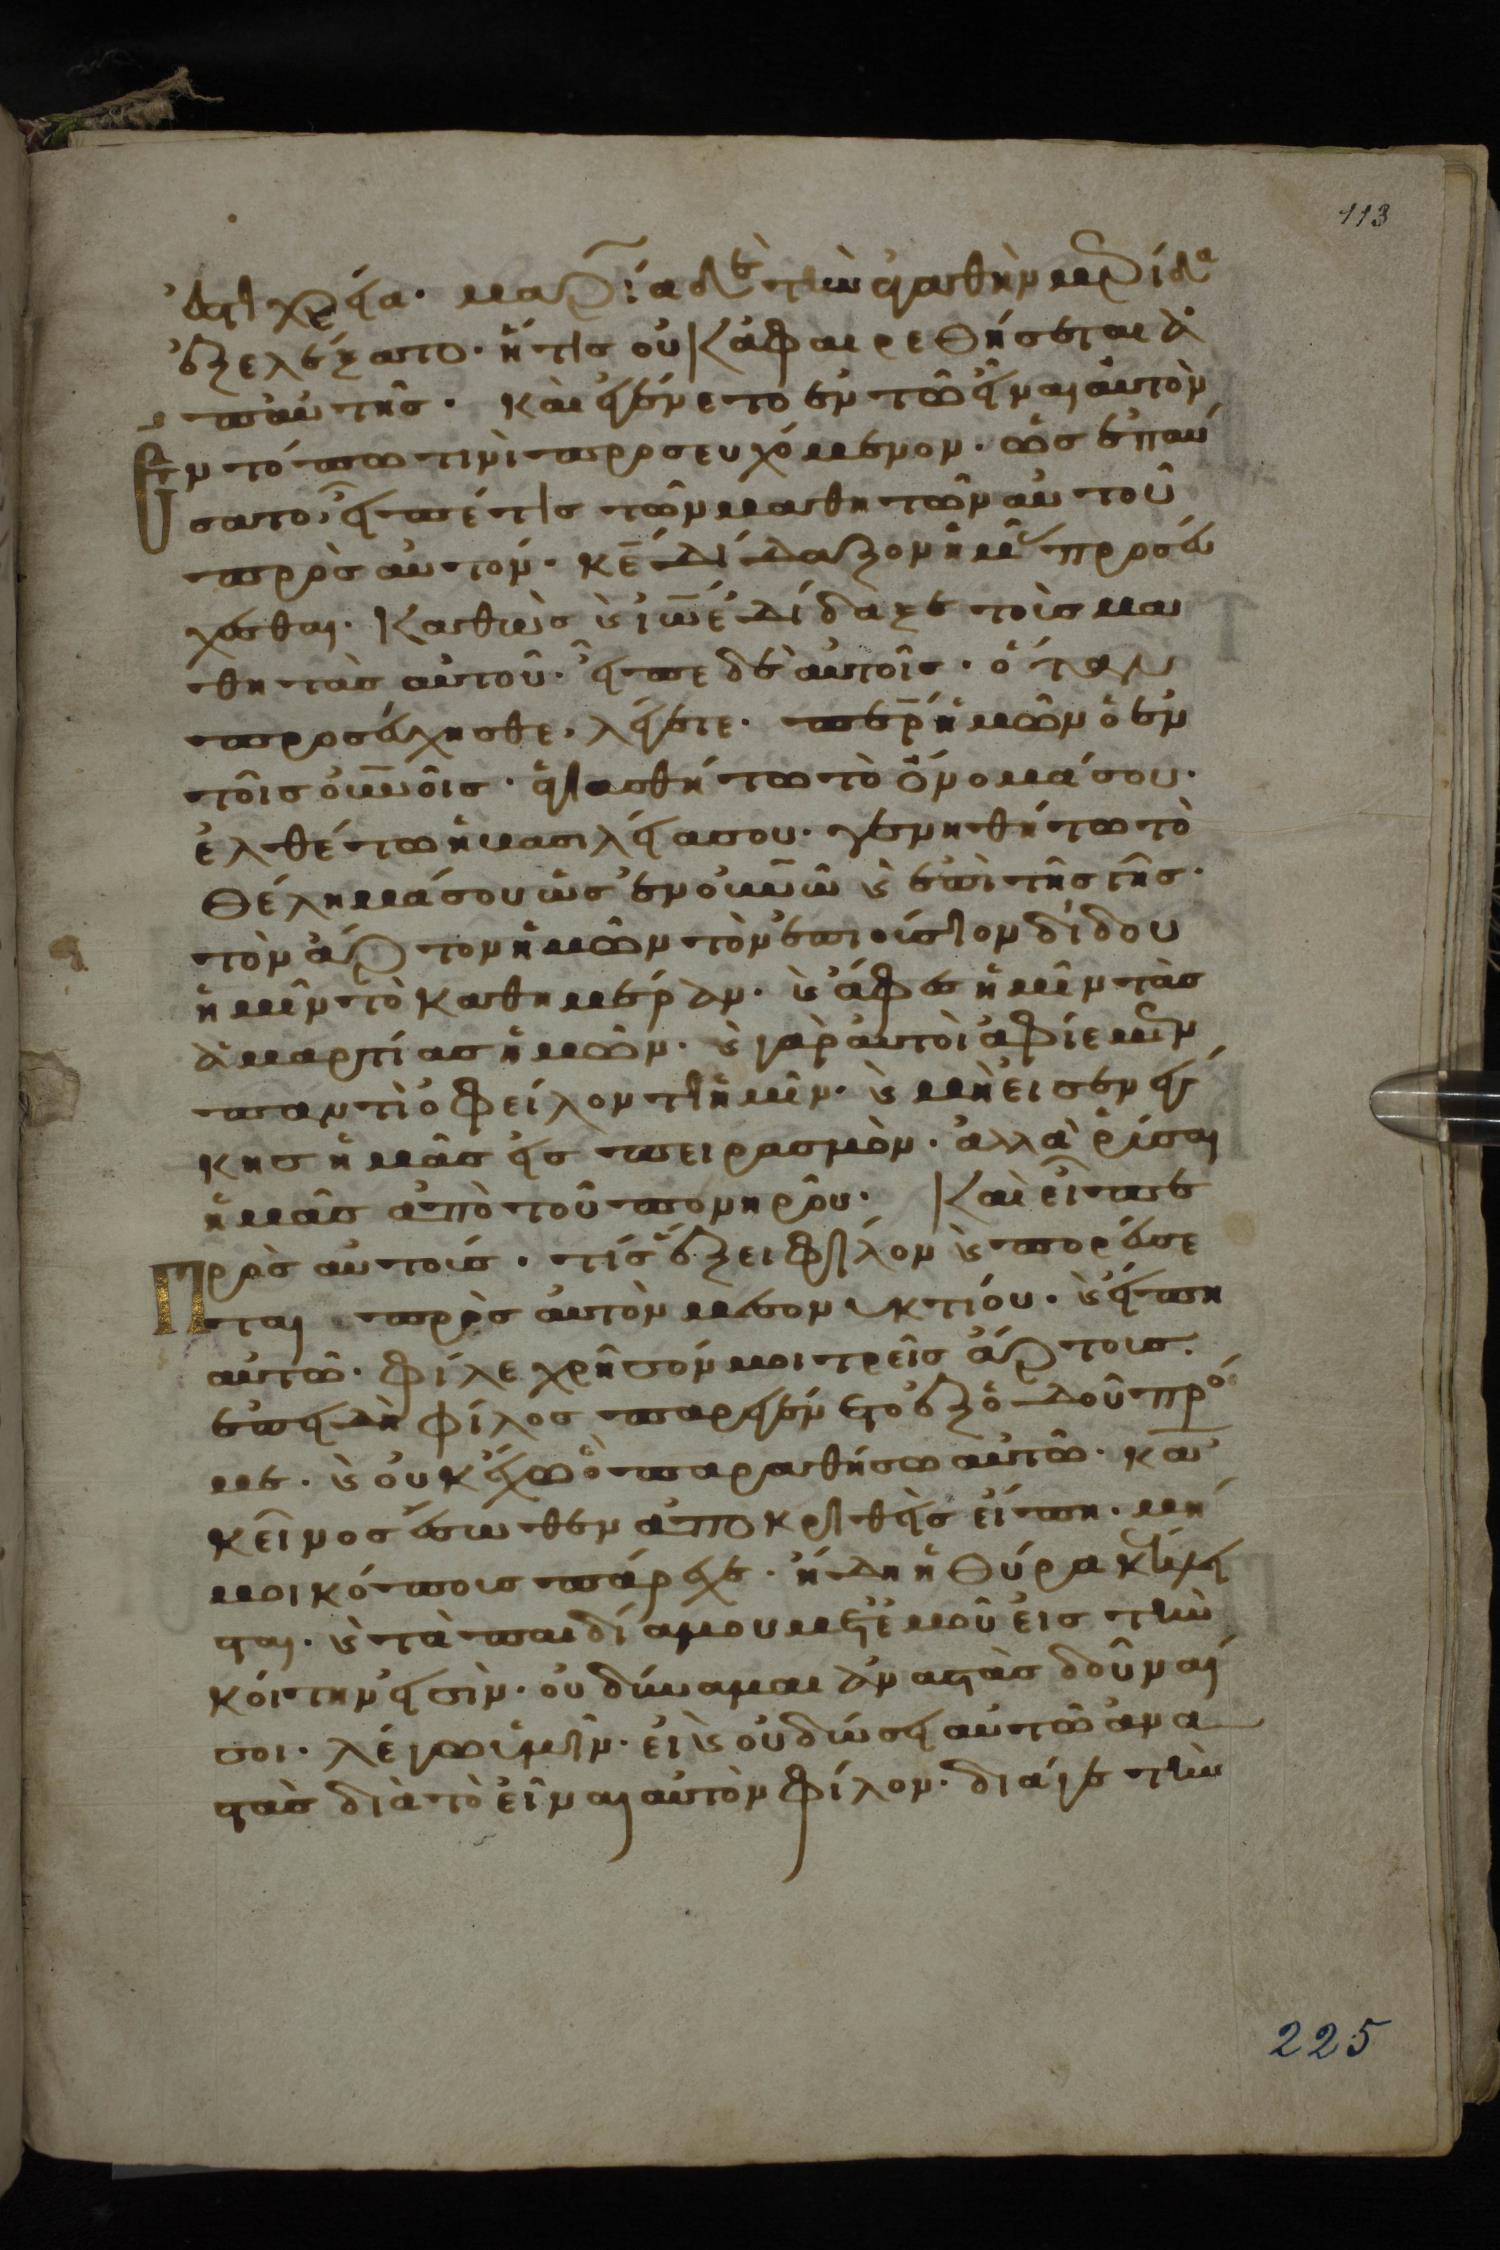 113
ἐστι χρεία· μαρία δὲ τὴν ἀγαθὴν μερίδα
ἐξελέξατο· ἥτις οὐκ ἀφαιρεθήσεται ἀ
π αὐτῆς· καὶ ἐγένετο ἐν τῶ εἶναι αὐτὸν
ἐν τόπω τινὶ προσευχόμενον· ὡς ἐπαύ
σατο, εἶπέ τις τῶν μαθητῶν αὐτοῦ
πρὸς αὐτόν· κε δίδαξον ἡμᾶς προσεύ
χεσθαι· καθὼς καὶ ἰω ἐδίδαξε τοὺς μα
θητὰς αὐτοῦ· εἶπε δὲ αὐτοῖς· ὅταν
προσεύχησθε, λέγετε· περ ἡμῶν ὁ ἐν
τοῖς οὐνοῖς· ἁγιασθήτω τὸ ὄνομά σου·
ἐλθέτω ἡ βασιλεία σου· γενηθήτω τὸ
θέλημά σου ὡς ἐν οὐνῶ καὶ ἐπὶ τῆς γῆς·
τὸν ἄρτον ἡμῶν τὸν ἐπιούσιον δίδου
ἡμῖν τὸ καθημέραν· καὶ ἄφες ἡμῖν τὰς
ἁμαρτίας ἡμῶν· καὶ γὰρ αὐτοὶ ἀφίεμεν
παντὶ ὀφείλοντι ἡμῖν· καὶ μὴ εἰσενέγ
κης ἡμᾶς εἰς πειρασμὸν· ἀλλὰ ῥύσαι
ἡμᾶς ἀπὸ τοῦ πονηροῦ· καὶ εἶπε
πρὸς αὐτούς· τίς ἕξει φίλον καὶ πορεύσε
ται πρὸς αὐτὸν μεσονυκτίου· καὶ εἴπη
αὐτῶ· φίλε χρῆσόν μοι τρεῖς ἄρτους·
ἐπειδὴ φίλος παρεγένετο ἐξ ὁδοῦ πρό
με· καὶ οὐκ ἔχω ὃ παραθήσω αὐτῶ· κα
κεῖνος ἔσωθεν ἀποκριθεὶς εἴπη· μή
μοι κόπους πάρεχε· ἤδη ἡ θύρα κέκλει
ται· καὶ τὰ παιδία μου μετ ἐμοῦ εἰς τὴν
κοίτην εἰσὶν· οὐ δύναμαι ἀναστὰς δοῦναί
σοι· λέγω ὑμῖν· εἰ καὶ οὐ δώσει αὐτῶ ἀνα
στὰς διὰ τὸ εἶναι αὐτὸν φίλον· διά γε τὴν
225